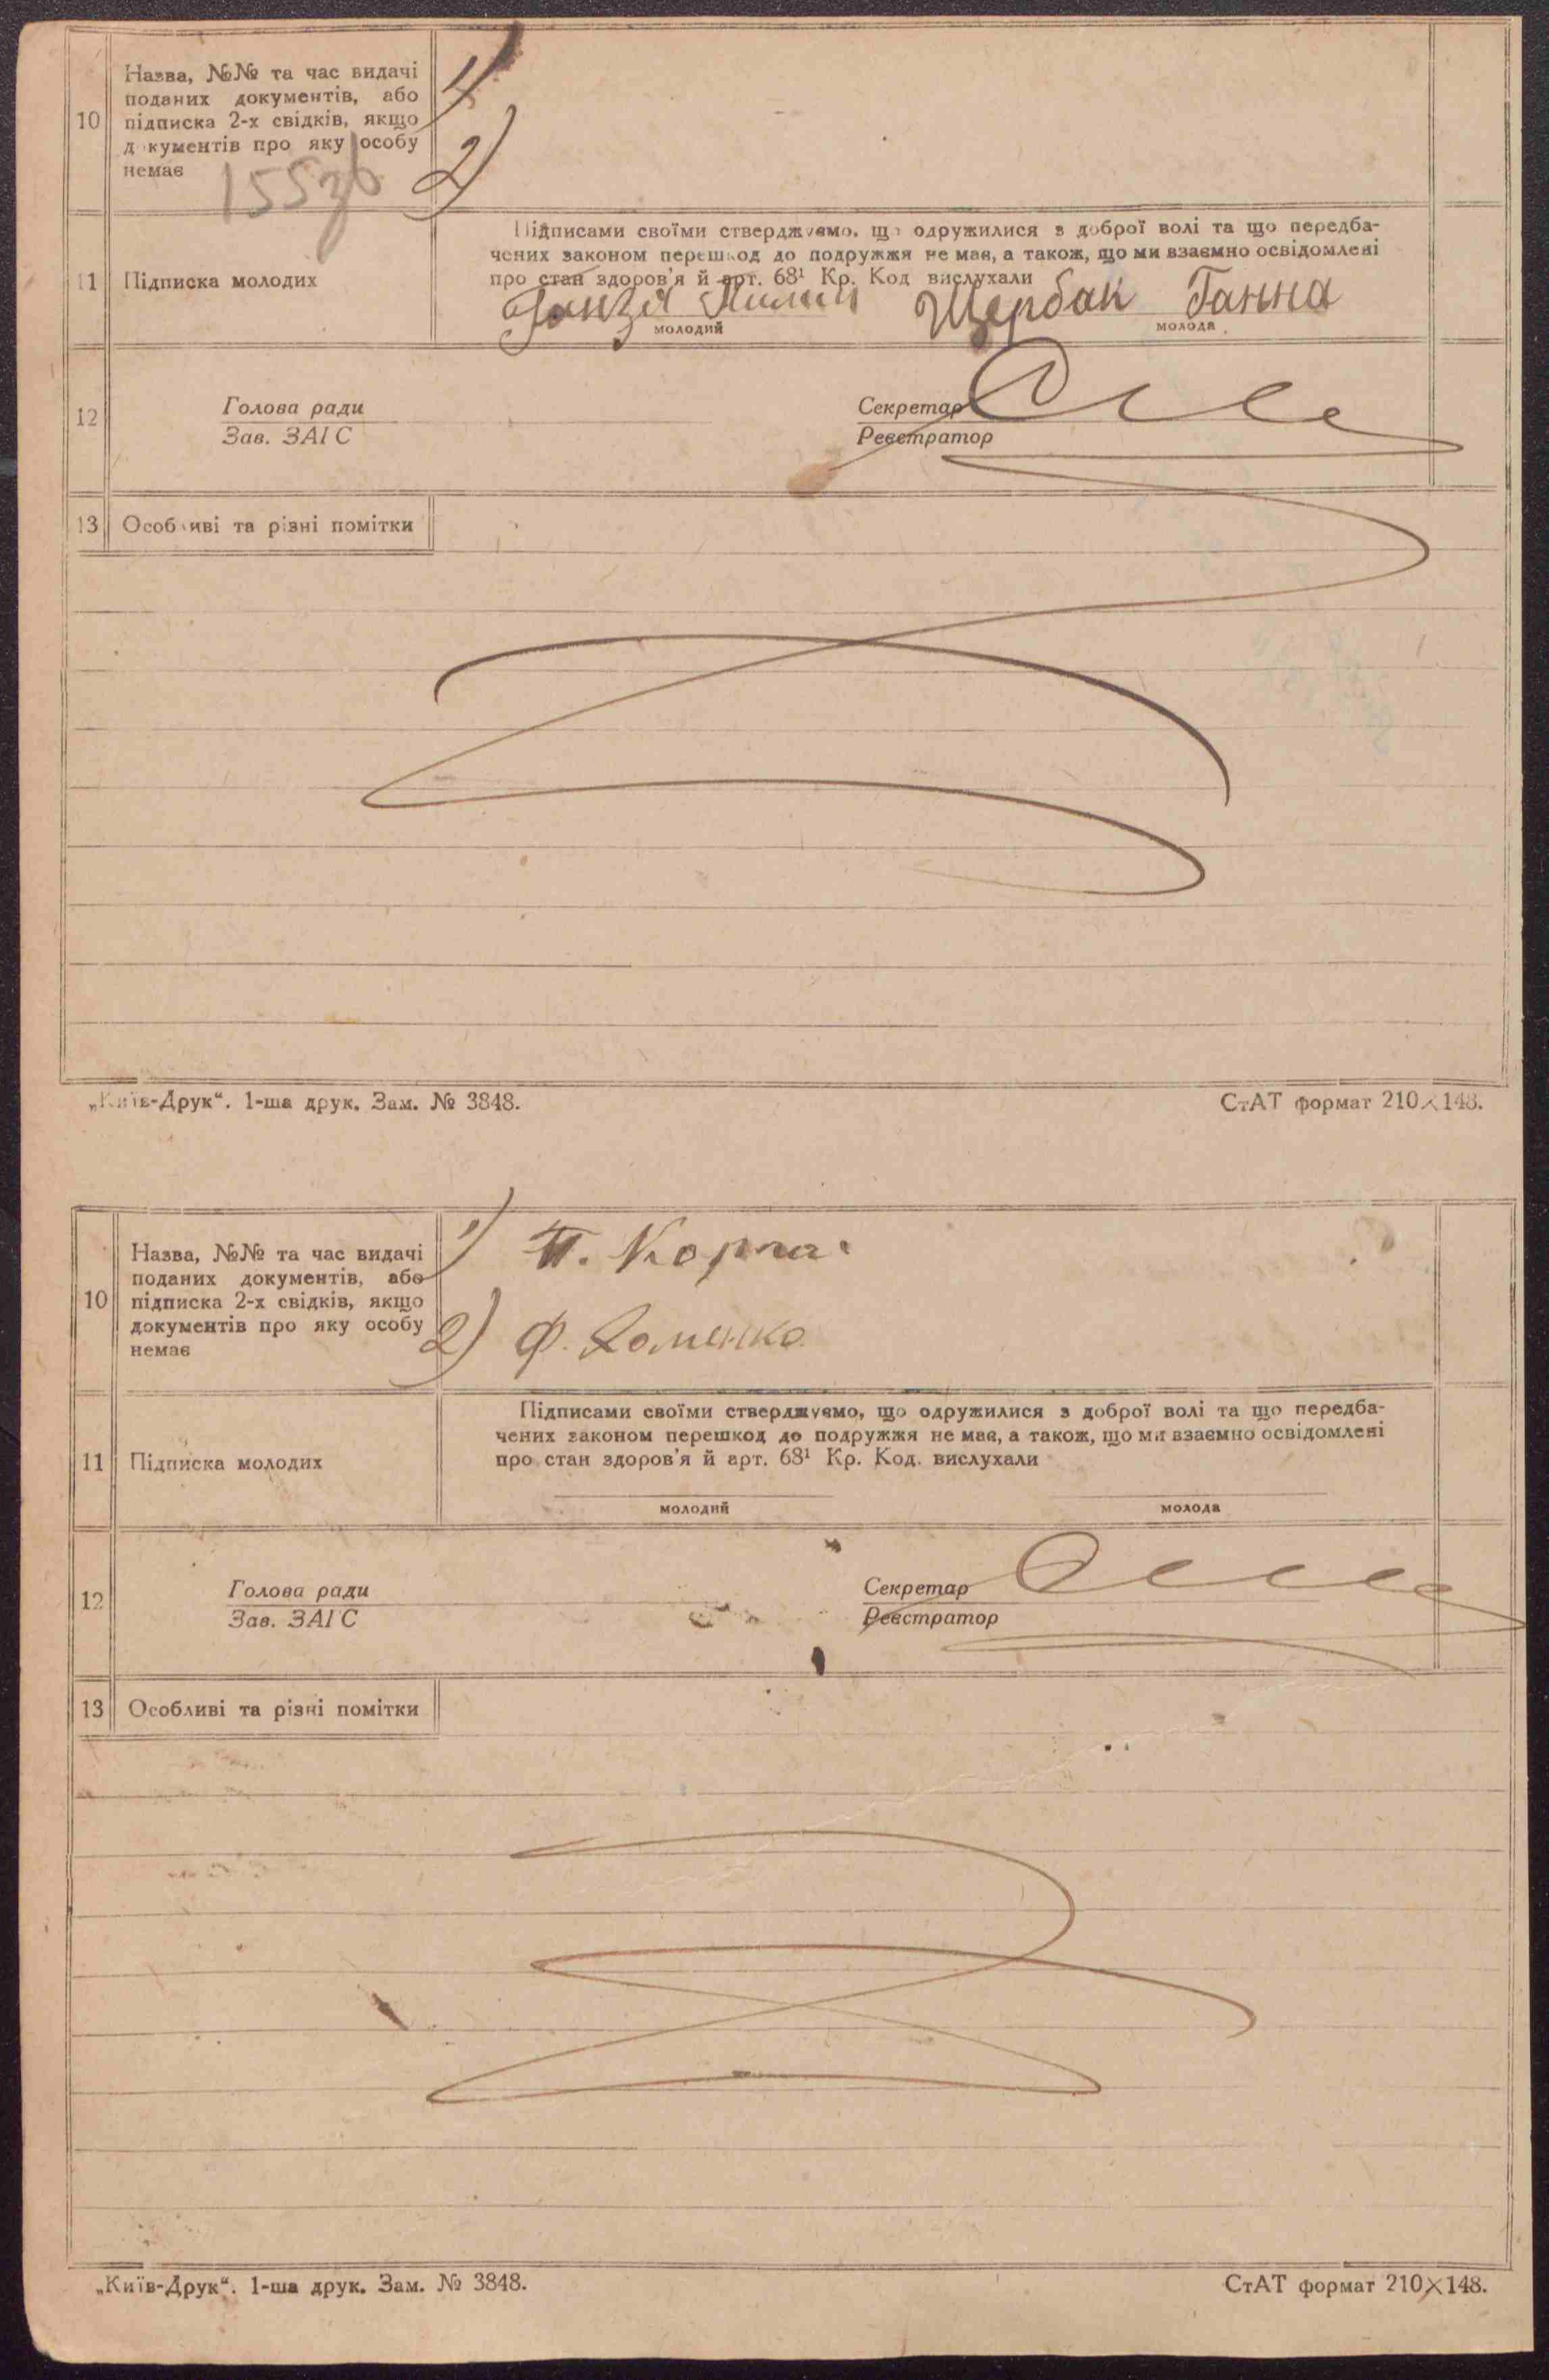 10
Назва, №№ та час видачі
поданих документів, або
підписка 2-х свідків, якщо
д кументів про яку особу
немає
1)
2)
11
Підписка молодих
Підписами своїми стверджуємо, що одружилися з доброї волі та що передба-
чених законом перешкод до подружжя не має, а також, що ми взаємно освідомлені
про стан здоров'я й арт. 68¹ Кр. Код вислухали
Щербак Ганна
молодий
молода
12
Голова ради
Зав. ЗАГС
Секретар
Реєстратор
13
Особливі та різні помітки
„Київ-Друк“. 1-ша друк. Зам. № 3848.
СтАТ формат 210×148.
10
Назва, №№ та час видачі
поданих документів, або
підписка 2-х свідків, якщо
документів про яку особу
немає
1) П.
2) Ф. Хоменко
11
Підписка молодих
Підписами своїми стверджуємо, що одружилися з доброї волі та що передба-
чених законом перешкод до подружжя не має, а також, що ми взаємно освідомлені
про стан здоров'я й арт. 68¹ Кр. Код. вислухали
молодий
молода
12
Голова ради
Зав. ЗАГС
Секретар
Реєстратор
13
Особливі та різні помітки
„Київ-Друк“. 1-ша друк. Зам. № 3848.
СтАТ формат 210×148.